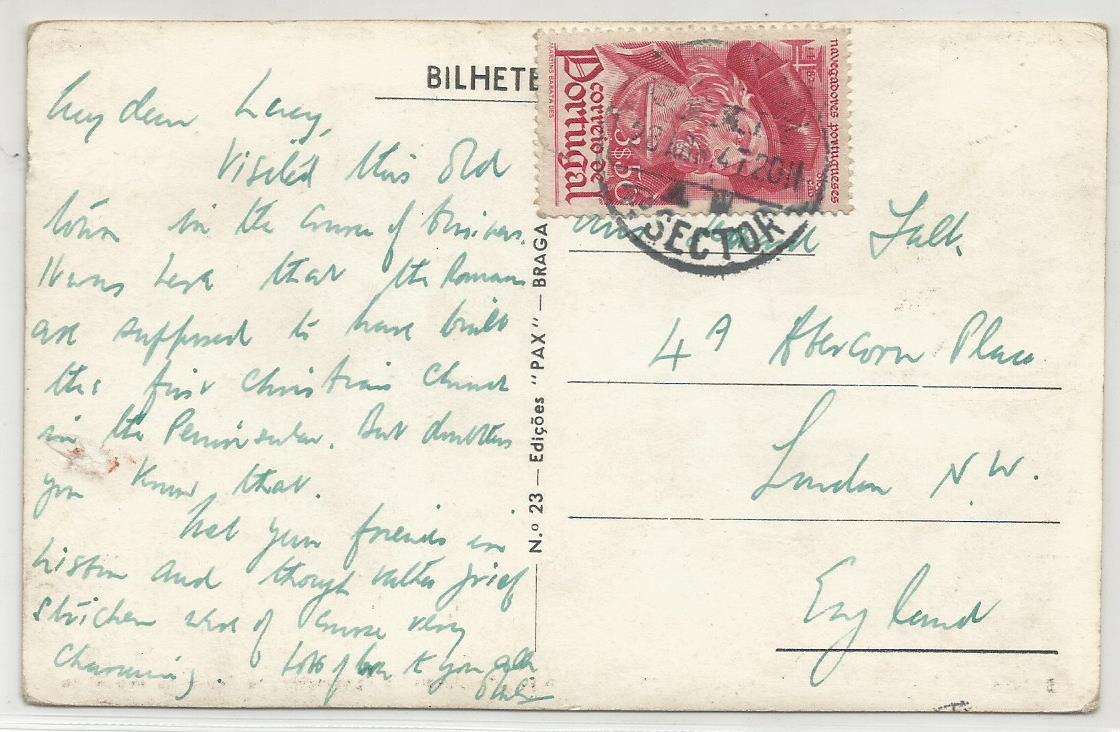 BILHETE
My dear Lency,
Visited this old
town in the course of business.
It was here that the Romans
are supposed to have built
the first Christian Church
in the Peninsular. But doubtless
you know that.
Met your friends in
Lisbon and though rather grief
stricken were of course very
charming. Lots of love to you all
N.º 23 — Edições "PAX" — BRAGA
correio de
Portugal
3$50
navegadores portugueses
MARTINS BARATA DES.
47.20H
SECTOR
4A Abercorn Place
London N.W.
England